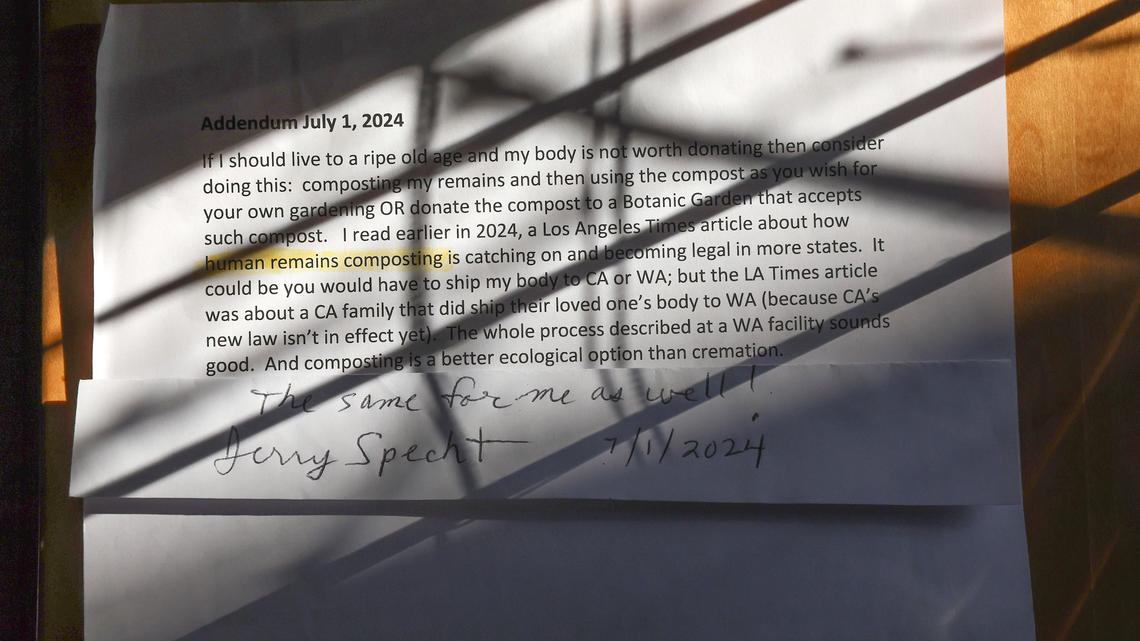 Addendum July 1, 2024
If I should live to a ripe old age and my body is not worth donating then consider
doing this:  composting my remains and then using the compost as you wish for
your own gardening OR donate the compost to a Botanic Garden that accepts
such compost.   I read earlier in 2024, a Los Angeles Times article about how
human remains composting is catching on and becoming legal in more states.  It
could be you would have to ship my body to CA or WA; but the LA Times article
was about a CA family that did ship their loved one’s body to WA (because CA’s
new law isn’t in effect yet).  The whole process described at a WA facility sounds
good.  And composting is a better ecological option than cremation.
The same for me as well!
Jerry Specht 7/1/2024